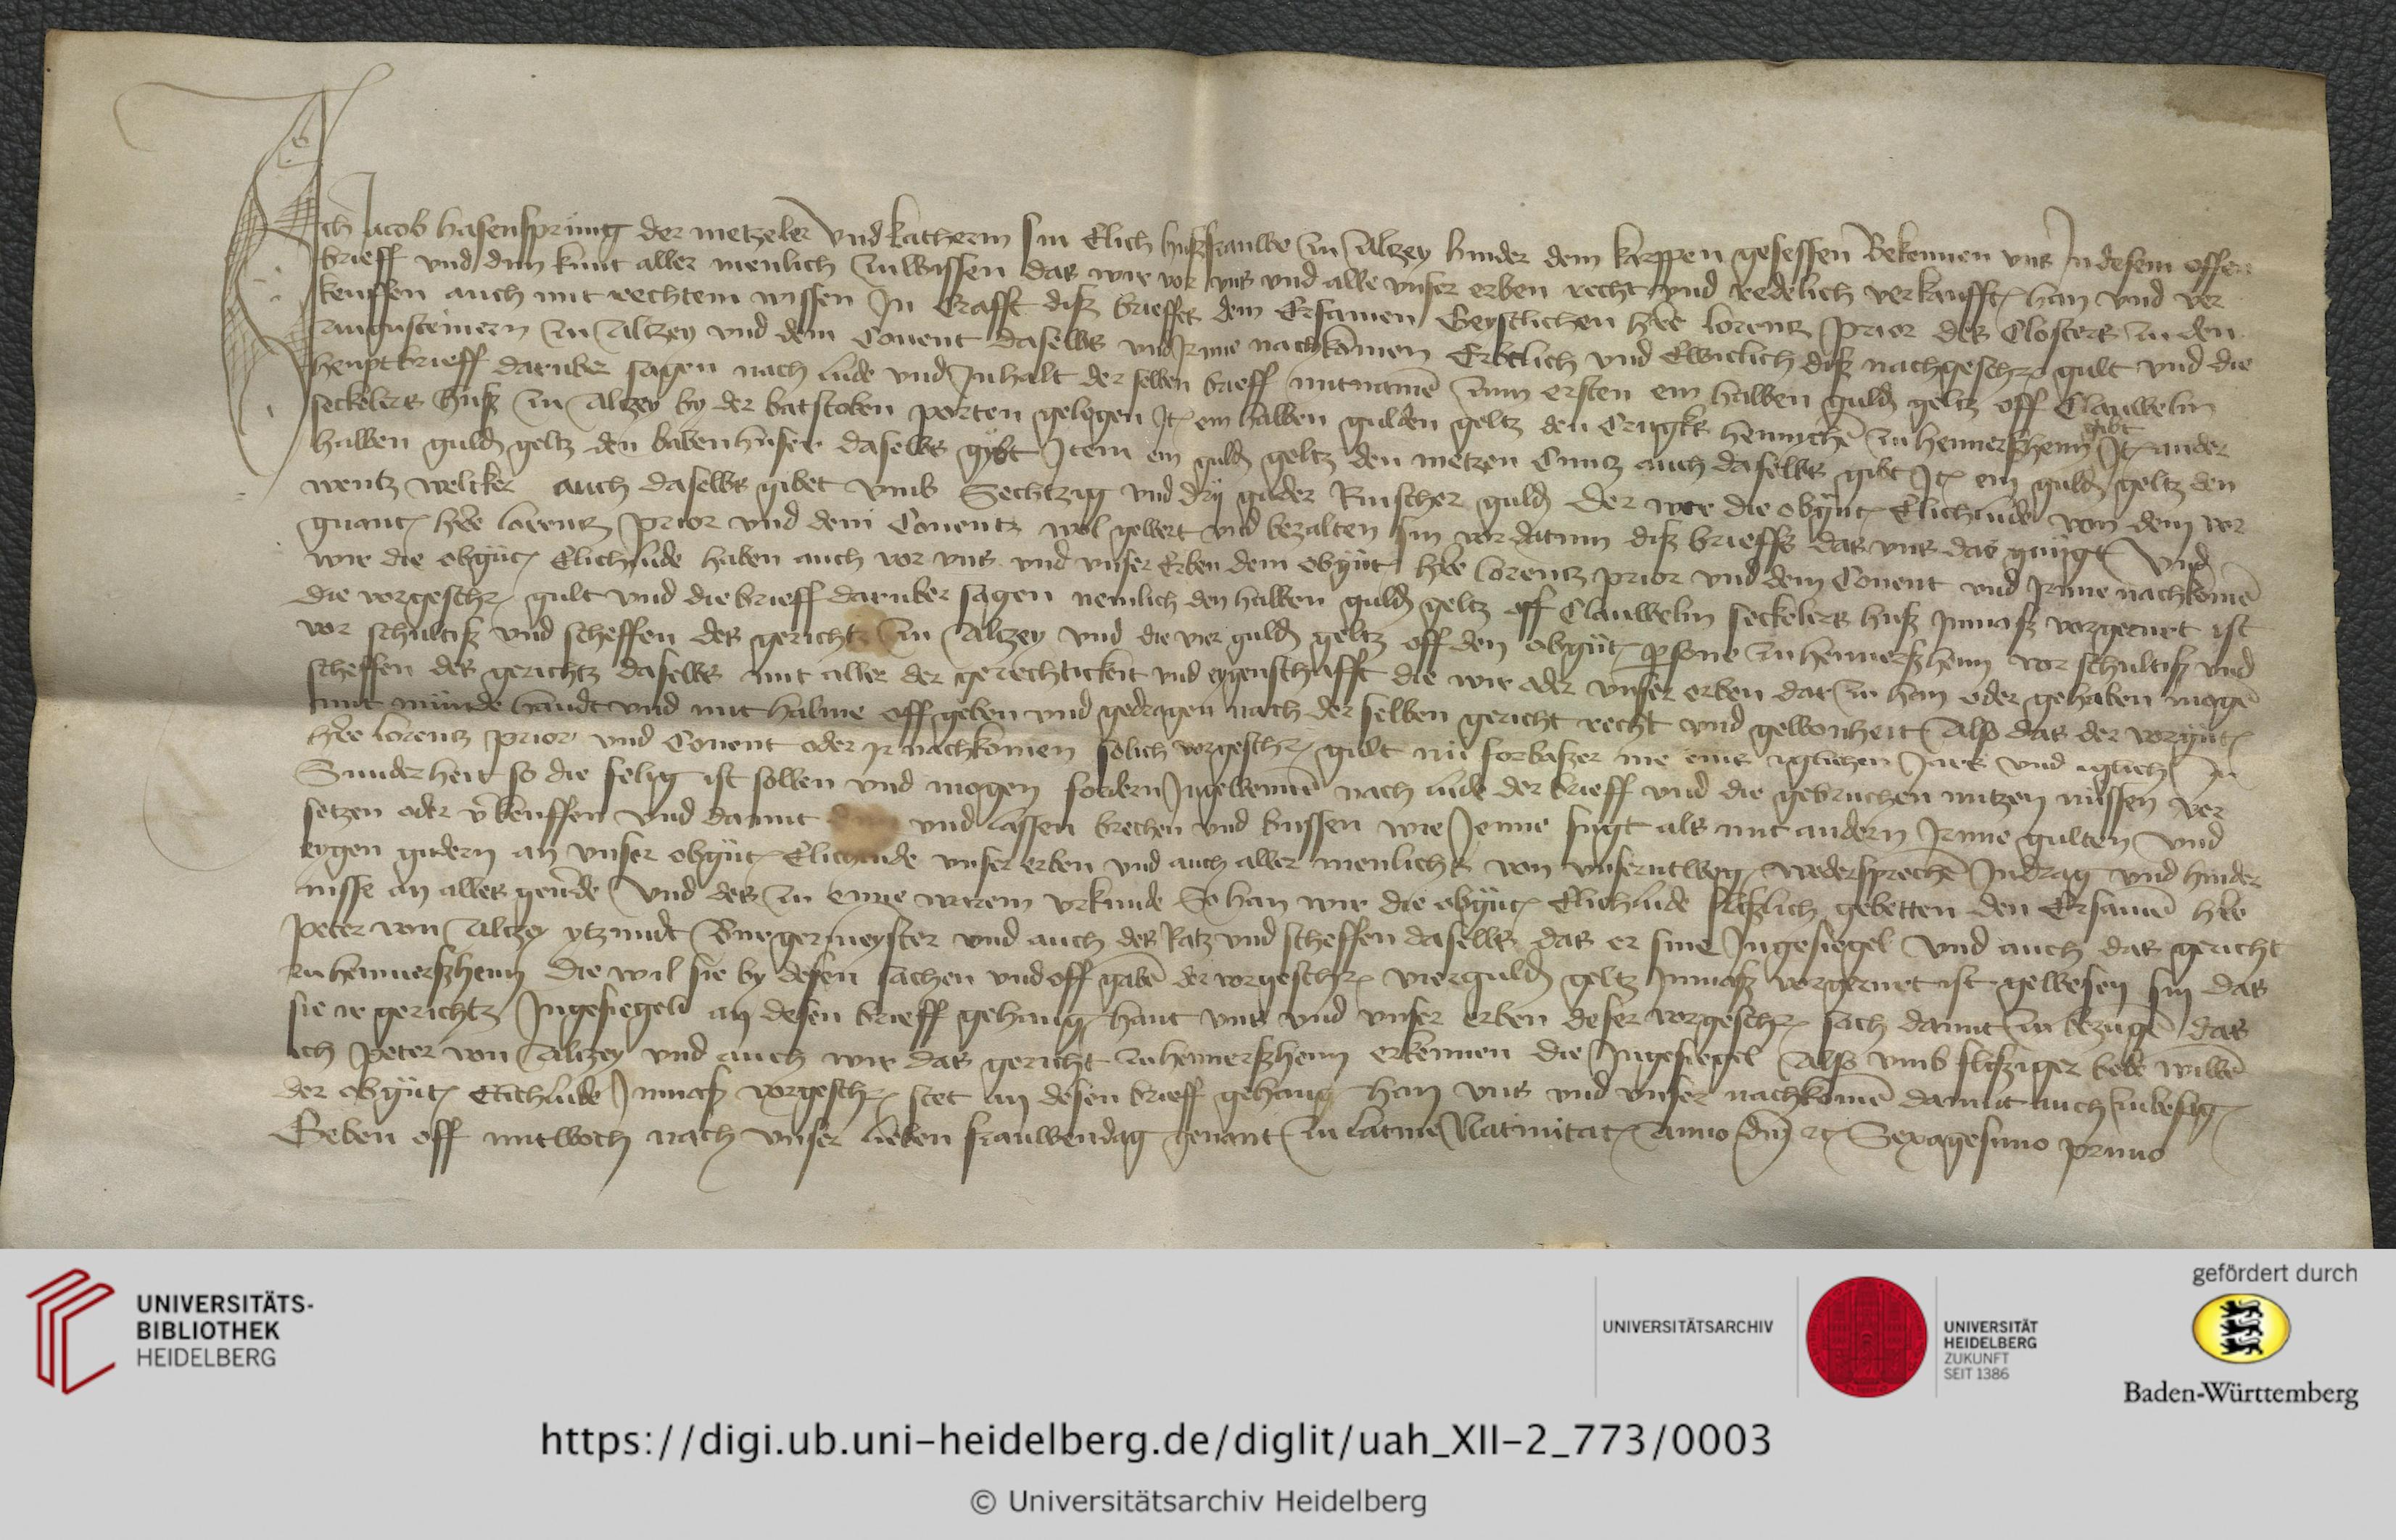 Ich Jacob hasensprung der metzeler Vnd Katherin sin Elich hußfrauwe zu Altzey hinder dem karppen gesessen Bekennen vns Jn desem offen
brieff vnd dun kunt aller menlich zuwissen das wir vor vns vnd alle vnser erben recht vnd redelich verkaufft han vnd ver
keuffen auch mit rechtem wissen Jn Crafft diß brieffs dem Ersamen Geystlichen hern lorentz prior des Closters zu den
augusteinern zu Altzey vnd dem Conent daselbs vnd Jrme nachkomen Erblich vnd Ewiclich diß nachgeschr gult vnd die
heuptbrieff daruber sagen nach lude vnd Jnhalt der selben brieff mitname zum ersten ein halben guld geltz off Clauwelin
seckelers huß zu Altzey by der batstoben porten gelegen Jt ein halben gulden geltz den Crugks hennche zu hennerßheim gibt Jt ander
halben guld geltz den babenhuser daselbs gybt Jtem ein guld geltz den metzen Cuntz auch daselbs gibt Jt ein guld geltz den
wentz welcker auch daselbs gibet vmb Sechtzig vnd dry guder Rinscher guld Der wir die obgnt Elichlude von dem vor
gnant hern lorentz prior vnd dem Conentz wol gewert vnd bezalten sin vor datum diß brieffs das vns das gnugt Vnd
wir die obgnt Elichlude haben auch vor vns vnd vnser Erben dem obgnt hern lorentz prior vnd dem Conent vnd Jrme nachkome
die vorgeschr gult vnd die brieff daruber sagen nemlich den halben guld geltz off Clauwelin seckelers huß Jnmaß vorgerurt ist
vor schultiß vnd scheffen des gerichtz zu Altzey vnd die vier guld geltz off den obgnt psone zu hennerßheim vor schultiß vnd
scheffen des gerichtz daselbs mit aller der gerechtickeit vnd eygenschafft die wir oder vnser erben dar zu han oder gehaben moge
mit munde handt vnd mit halme off geben vnd gedragen nach der selben gericht recht vnd gewonheit Also das der vorgnt
hern lorentz prior vnd Conent oder Jr nachkomen solich vorgeschr gult nu forbaßer me eins iglichen Jars vnd iglich Jn
Sunderheit so die felig ist sollen vnd mogen fordern Jngewenne nach lude der brieff vnd die gebruchen nutzen nissen ver
setzen oder vkeuffen vnd damit dun vnd lassen brechen vnd bussen wie Jenne fugt als mit andern Jrme gulten vnd
eygen gudern an vnser obgnt Elichlude vnser erben vnd auch aller menlichs von vnserntweg wedersproche Jndrag vnd hinder
nisse an alles geuerde Vnd des zu eyme warem vrkunde So han wir die obgnt Elichlude flißlich gebetten den Ersame hern
peter von Altzey ytzundt Burgermeyster vnd auch des Ratz vnd scheffen daselbs das er sine Jngesiegel vnd auch das gericht
zu hennerßheim die wil sie by desen sachen vnd off gabe der vorgeschr vierguld geltz Jnmaß vorgerurt ist gewesen sin das
sie ir gerichtz Jngesiegel an desen brieff gehang hant vns vnd vnser erben deser vorgeschr sach damit zu bezuge das
ich peter von Altzey vnd auch wir das gericht zu hennerßheim erkennen die Jngesiegel Also vmb flißiger bede wille
der obgnt Elichlude Jnmaß vorgeschr stet an desen brieff gehang han vns vnd vnser nachkome damit auch zubesag
Geben off mitwoch nach vnser lieben frauwendag genant zu latine Natiuitat Anno dm rc Sexagesimo primo
UNIVERSITÄTS-
BIBLIOTHEK
HEIDELBERG
UNIVERSITÄTSARCHIV
UNIVERSITÄT
HEIDELBERG
ZUKUNFT
SEIT 1386
gefördert durch
Baden-Württemberg
https://digi.ub.uni-heidelberg.de/diglit/uah_XII-2_773/0003
© Universitätsarchiv Heidelberg